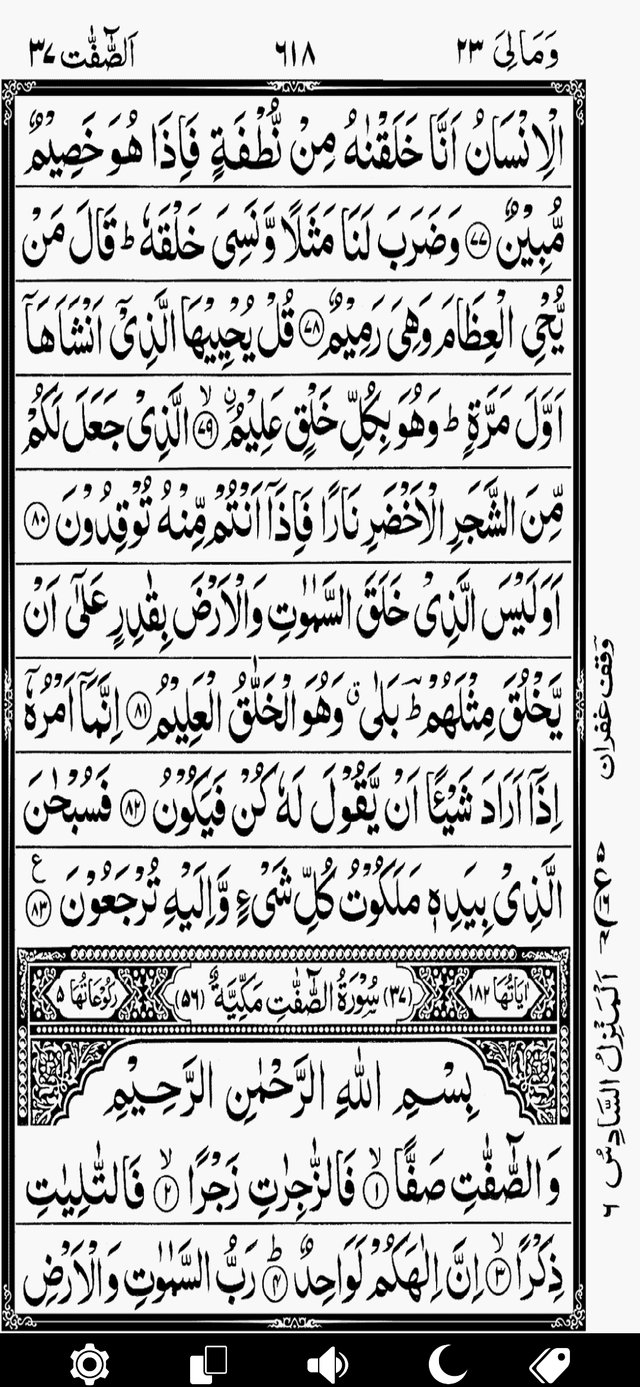 وَمَالِیَ ٢٣
٦١٨
اَلصّٰٓفّٰت ٣٧
الْاِنْسَانُ اَنَّا خَلَقْنٰهُ مِنْ نُّطْفَةٍ فَاِذَا هُوَ خَصِیْمٌ
مُّبِیْنٌ ﴿٧٧﴾ وَضَرَبَ لَنَا مَثَلًا وَّنَسِیَ خَلْقَهٗ ؕ قَالَ مَنْ
یُّحْیِ الْعِظَامَ وَهِیَ رَمِیْمٌ ﴿٧٨﴾ قُلْ یُحْیِیْهَا الَّذِیْۤ اَنْشَاَهَاۤ
اَوَّلَ مَرَّةٍ ؕ وَهُوَ بِكُلِّ خَلْقٍ عَلِیْمُ ۙ ﴿٧٩﴾ الَّذِیْ جَعَلَ لَكُمْ
مِّنَ الشَّجَرِ الْاَخْضَرِ نَارًا فَاِذَاۤ اَنْتُمْ مِّنْهُ تُوْقِدُوْنَ ﴿٨٠﴾
اَوَلَیْسَ الَّذِیْ خَلَقَ السَّمٰوٰتِ وَالْاَرْضَ بِقٰدِرٍ عَلٰۤی اَنْ
یَّخْلُقَ مِثْلَهُمْ ؕ بَلٰی ۗ وَهُوَ الْخَلّٰقُ الْعَلِیْمُ ﴿٨١﴾ اِنَّمَاۤ اَمْرُهٗۤ
اِذَاۤ اَرَادَ شَیْـًٔا اَنْ یَّقُوْلَ لَهٗ كُنْ فَیَكُوْنُ ﴿٨٢﴾ فَسُبْحٰنَ
الَّذِیْ بِیَدِهٖ مَلَكُوْتُ كُلِّ شَیْءٍ وَّاِلَیْهِ تُرْجَعُوْنَ ﴿٨٣﴾ ع
اٰیَاتُهَا ١٨٢
(٣٧) سُوْرَةُ الصّٰٓفّٰتِ مَكِّیَّةٌ (٥٦)
رُكُوْعَاتُهَا ٥
بِسْمِ اللّٰهِ الرَّحْمٰنِ الرَّحِیْمِ
وَالصّٰٓفّٰتِ صَفًّا ۙ ﴿١﴾ فَالزّٰجِرٰتِ زَجْرًا ۙ ﴿٢﴾ فَالتّٰلِیٰتِ
ذِكْرًا ۙ ﴿٣﴾ اِنَّ اِلٰهَكُمْ لَوَاحِدٌ ؕ ﴿٤﴾ رَبُّ السَّمٰوٰتِ وَالْاَرْضِ
وقف غفران
اَلْمَنْزِلُ السَّادِسُ ٦